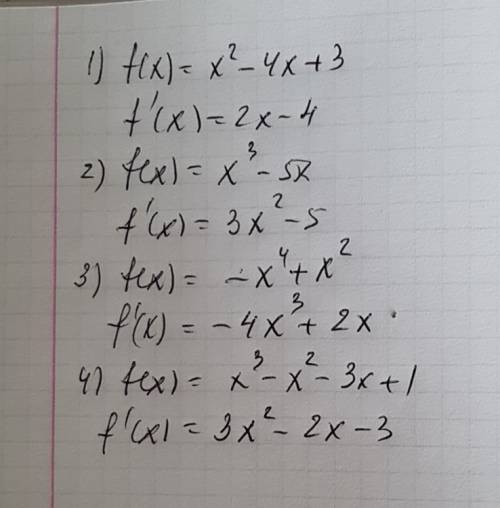 1) f(x) = x² - 4x + 3
f'(x) = 2x - 4
2) f(x) = x³ - 5x
f'(x) = 3x² - 5
3) f(x) = -x⁴ + x²
f'(x) = -4x³ + 2x
4) f(x) = x³ - x² - 3x + 1
f'(x) = 3x² - 2x - 3